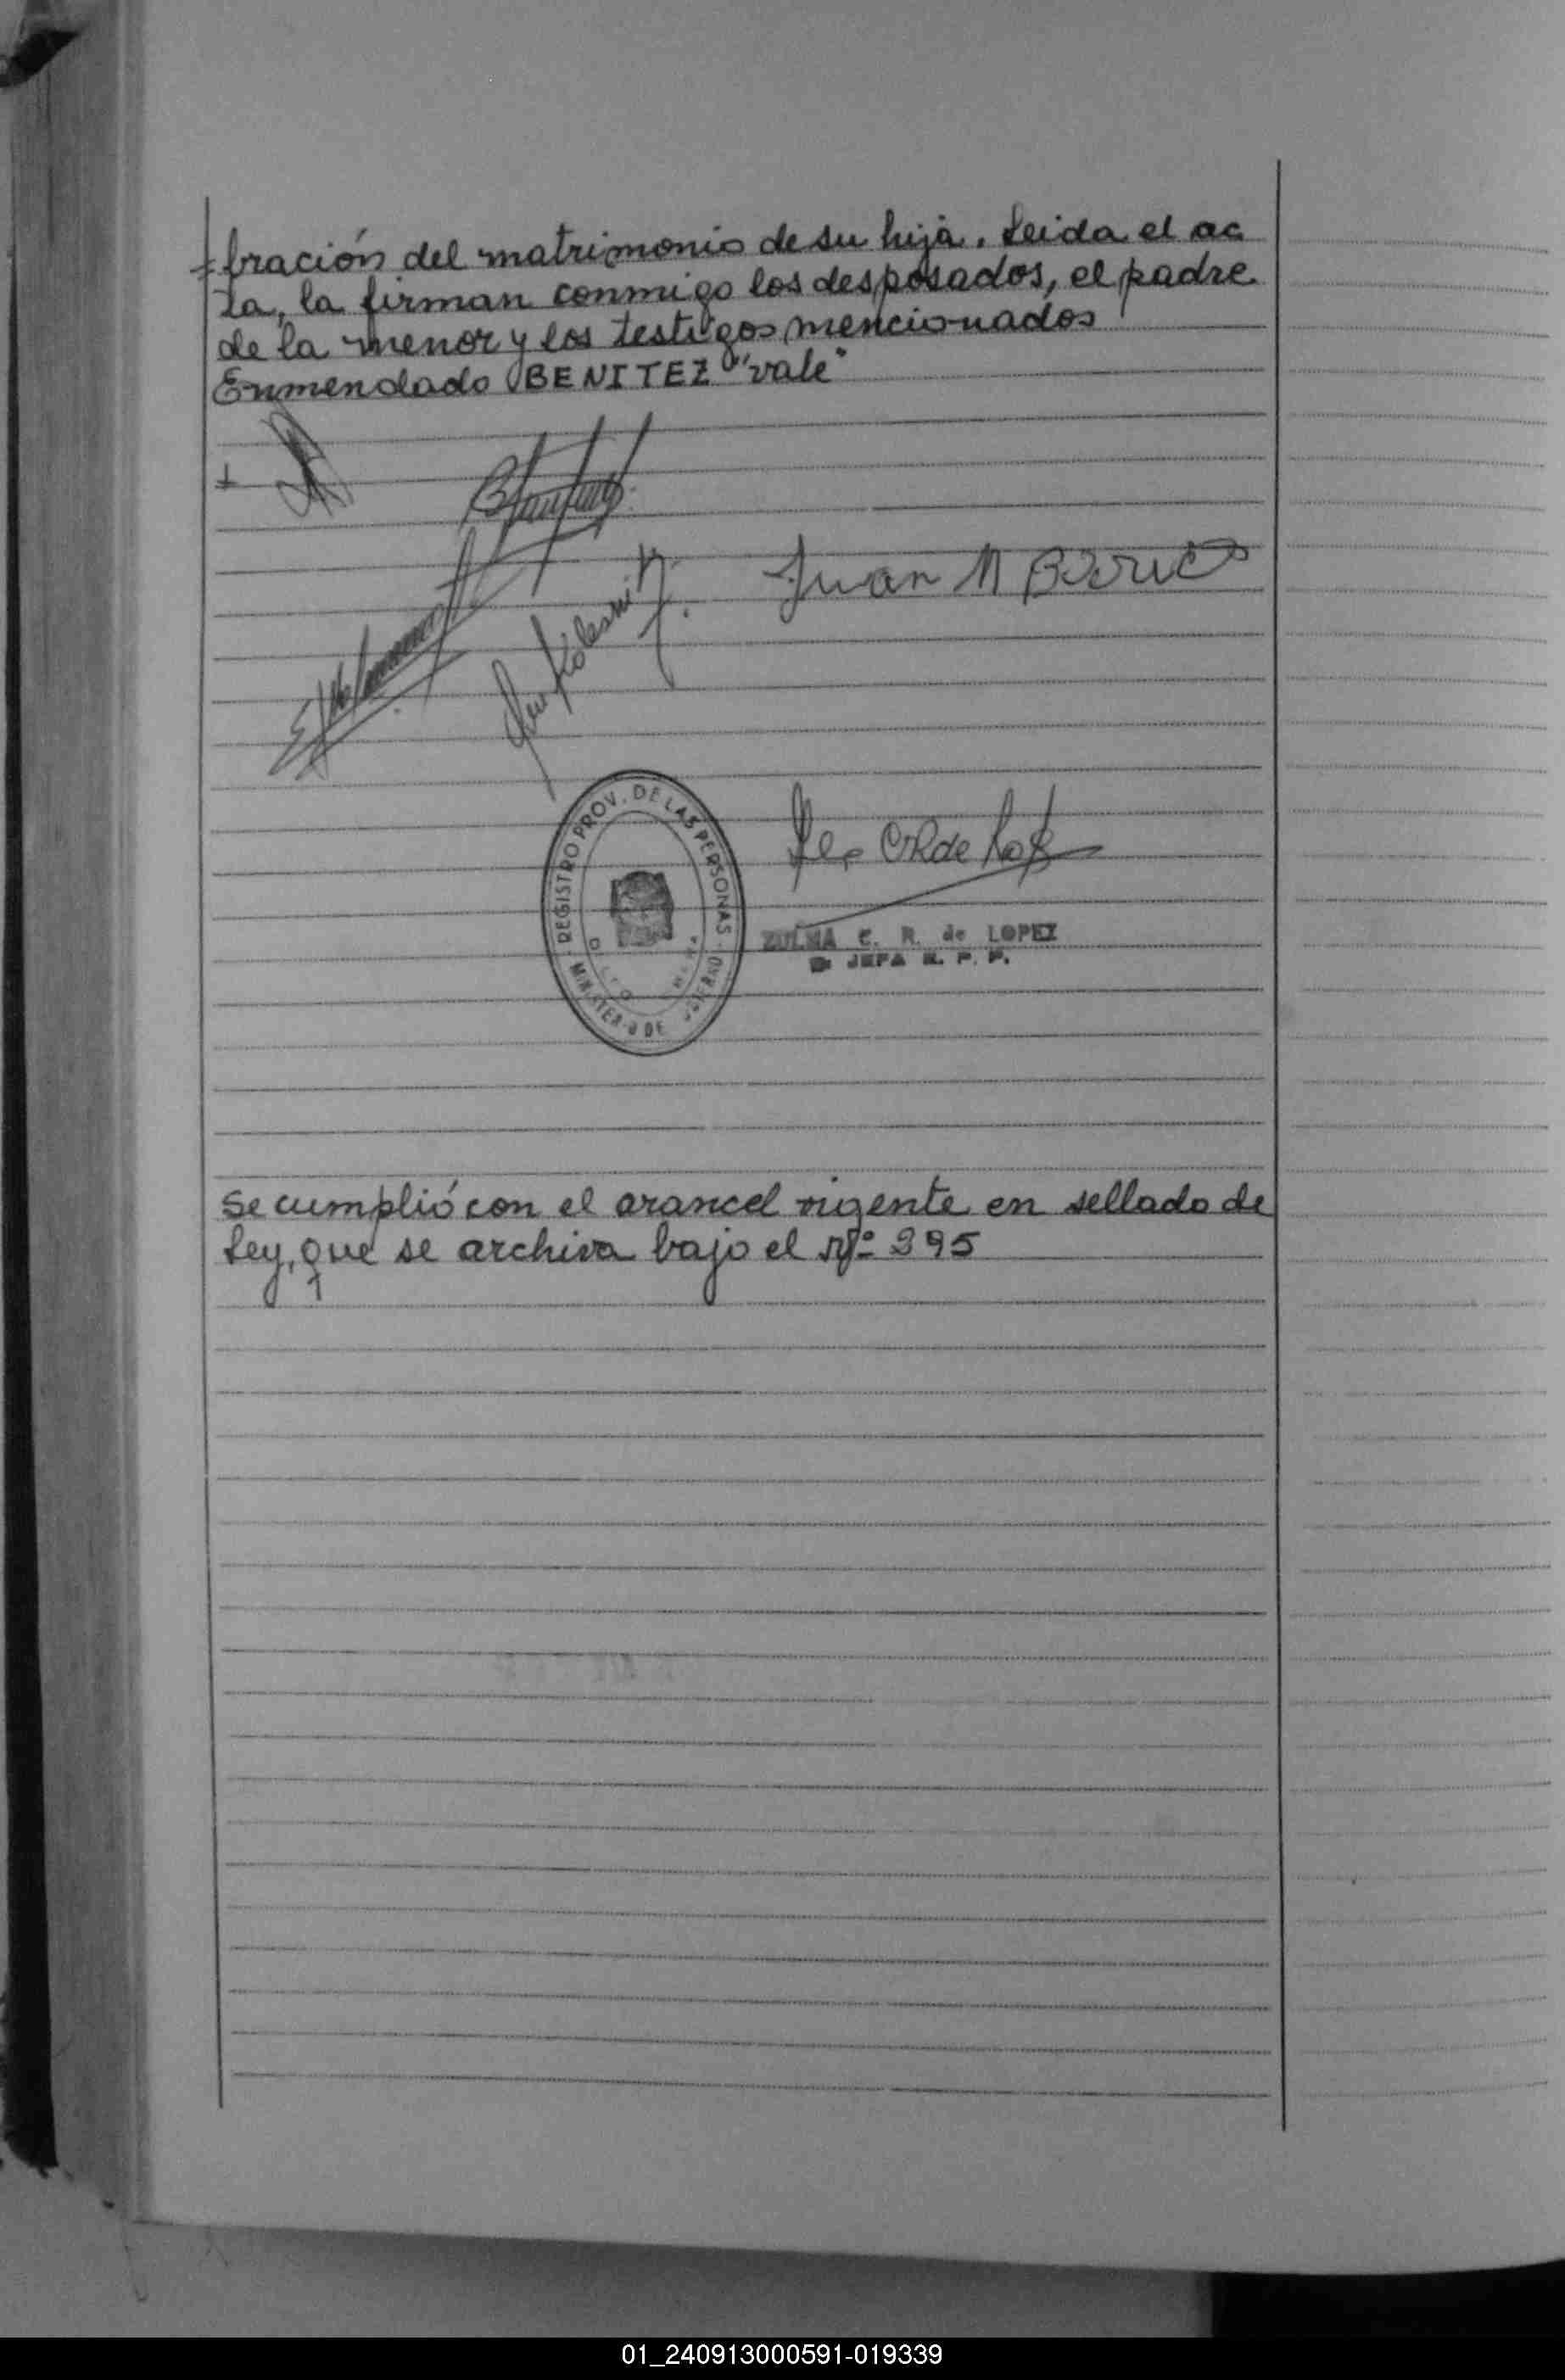 bración del matrimonio de su hija. Leida el ac
ta, la firman conmigo los desposados, el padre
de la menor y los testigos mencionados
Enmendado BENITEZ "vale"
Juan M
REGISTRO PROV. DE LAS PERSONAS
MINISTERIO DE GOBIERNO
ZULMA C. R. de LOPEZ
JEFA R. P. P.
Se cumplió con el arancel vigente en sellado de
Ley, que se archiva bajo el Nº 395
01_240913000591-019339